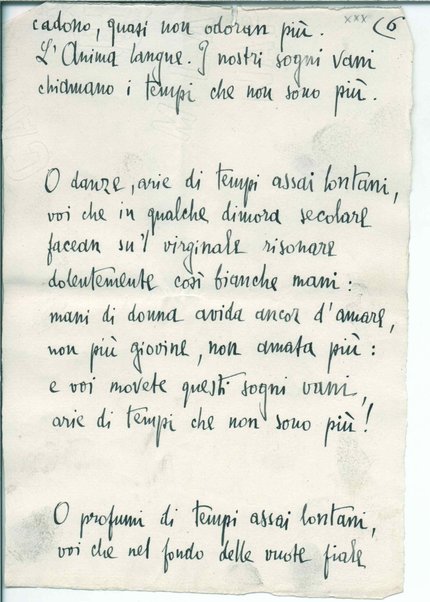 xxx (6
cadono, quasi non odoran più.
L'Anima langue. I nostri sogni vani
chiamano i tempi che non sono più.
O danze, arie di tempi assai lontani,
voi che in qualche dimora secolare
facean su'l virginale risonare
dolentemente così bianche mani:
mani di donna avida ancor d'amare,
non più giovine, non amata più:
e voi movete questi sogni vani,
arie di tempi che non sono più!
O profumi di tempi assai lontani,
voi che nel fondo delle vuote fiale